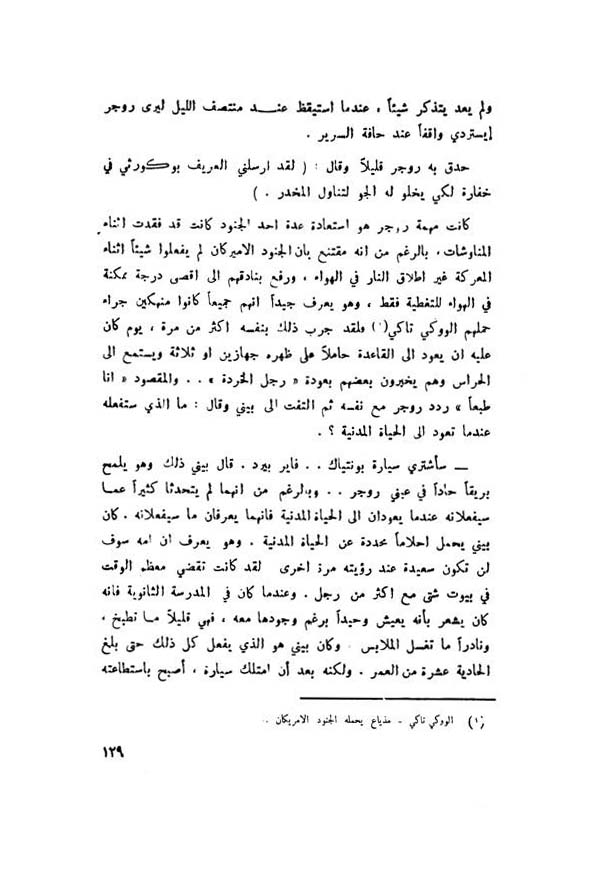 ولم يعد يتذكر شيئاً ، عندما استيقظ عنـــد منتصف الليل ليرى روجر
إيستردي واقفاً عند حافة السرير .
حدق به روجر قليلاً وقال : ( لقد ارسلني العريف بوكورثي في
خفارة لكي يخلو له الجو لتناول المخدر . )
كانت مهمة روجر هو استعادة عدة احد الجنود كانت قد فقدت اثناء
المناوشات ، بالرغم من انه مقتنع بان الجنود الاميركان لم يفعلوا شيئاً اثناء
المعركة غير اطلاق النار في الهواء ، ورفع بنادقهم الى اقصى درجة ممكنة
في الهواء للتغطية فقط ، وهو يعرف جيداً انهم جميعاً كانوا منهكين جراء
حملهم الووكي تاكي(١) فلقد جرب ذلك بنفسه اكثر من مرة ، يوم كان
عليه ان يعود الى القاعدة حاملاً على ظهره جهازين او ثلاثة ويستمع الى
الحراس وهم يخبرون بعضهم بعودة « رجل الخردة » . . والمقصود « انا
طبعاً » ردد روجر مع نفسه ثم التفت الى بيني وقال : ما الذي ستفعله
عندما تعود الى الحياة المدنية ؟ .
ــ سأشتري سيارة بونتياك . . فاير بيرد . قال بيني ذلك وهو يلمح
بريقاً حاداً في عيني روجر . . وبالرغم من انهما لم يتحدثا كثيراً عمـا
سيفعلانه عندما يعودان الى الحياة المدنية فانهما يعرفان ما سيفعلانه . كان
بيني يحمل احلاماً محددة عن الحياة المدنية . وهو يعرف ان امه سوف
لن تكون سعيدة عند رؤيته مرة اخرى لقد كانت تقضي معظم الوقت
في بيوت شتى مع اكثر من رجل . وعندما كان في المدرسة الثانوية فانه
كان يشعر بأنه يعيش وحيداً برغم وجودها معه ، فهي قليلاً مـا تطبخ ،
ونادراً ما تغسل الملابس وكان بيني هو الذي يفعل كل ذلك حتى بلغ
الحادية عشرة من العمر . ولكنه بعد أن امتلك سيارة ، أصبح باستطاعته
(١) الووكي تاكي - مذياع يحمله الجنود الامريكان .
١٢٩